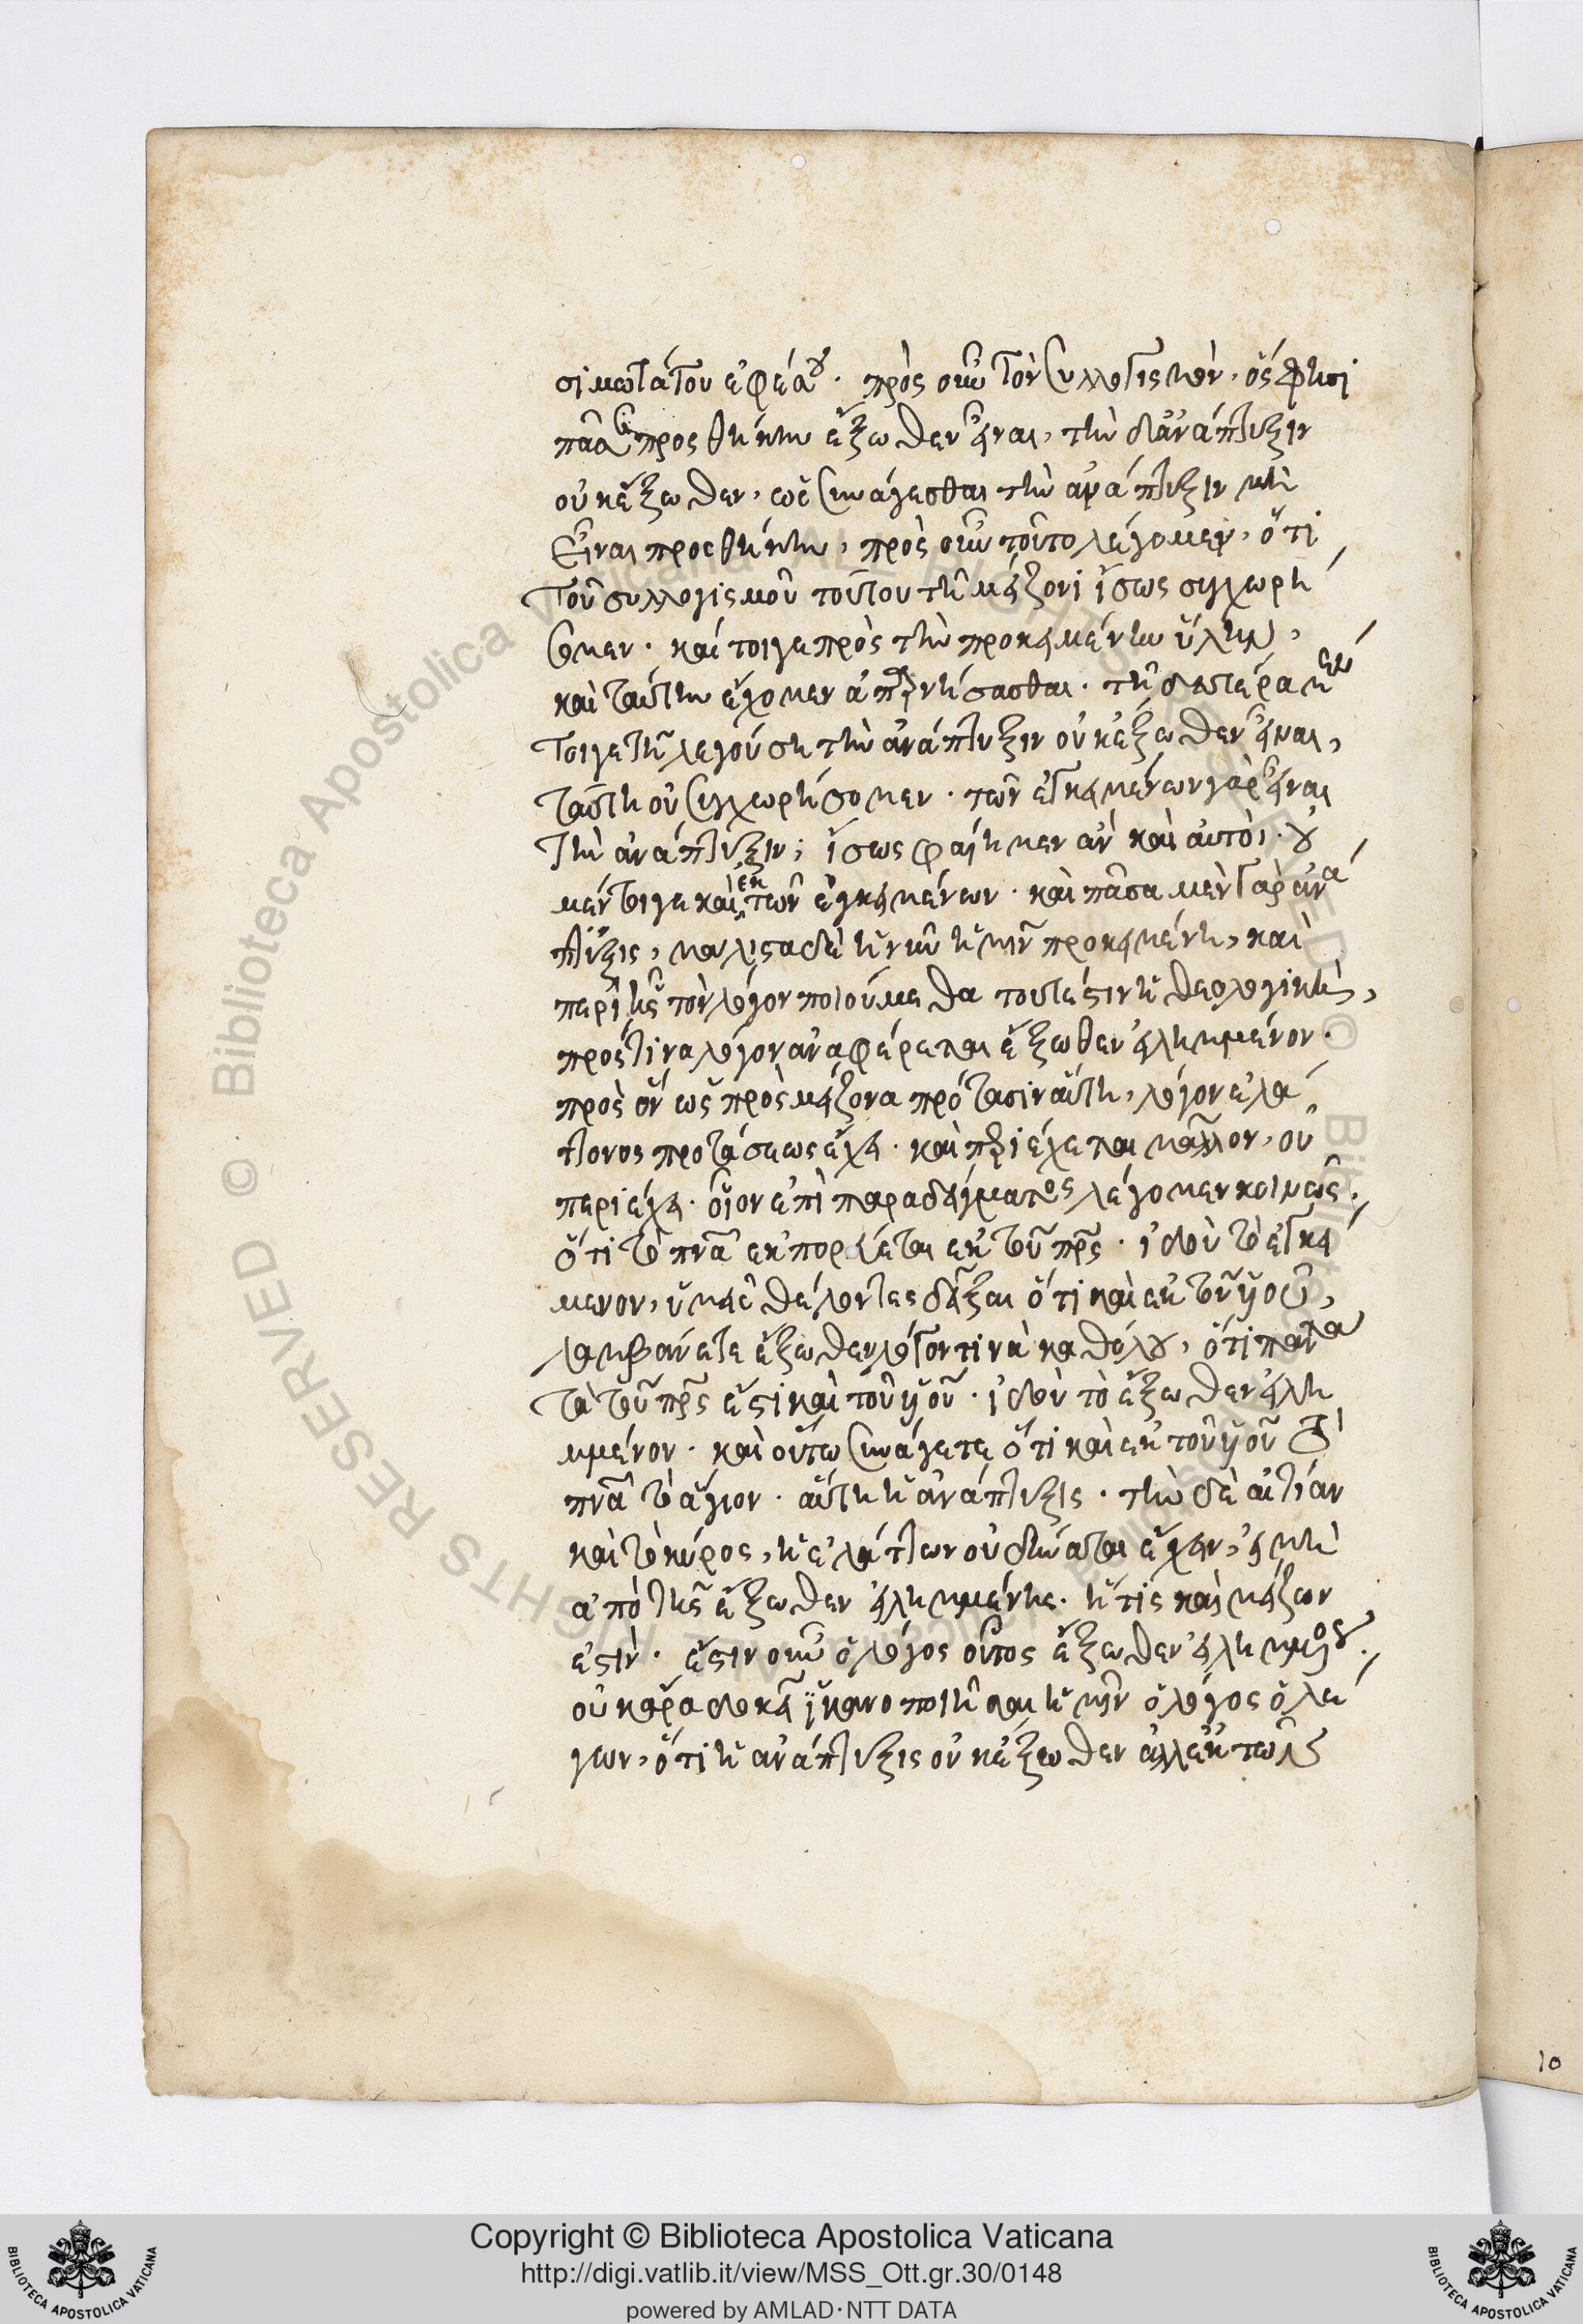 σιμωτάτου ἐφέσου. πρὸς οὖν τὸν συλλογισμὸν, ὅς φησι
πᾶσαν προσθήκην ἔξωθεν εἶναι, τὴν δἀνάπτυξιν
οὐκ ἔξωθεν, ὡς συνάγεσθαι τὴν ἀνάπτυξιν μὴ
εἶναι προσθήκην, πρὸς οὖν τοῦτο λέγομεν, ὅτι
τοῦ συλλογισμοῦ τούτου τῇ μείζονι ἴσως συγχωρή
σομεν. καί τοιγε πρὸς τὴν προκειμένην ὕλην,
καὶ ταύτην ἔχομεν ἀπαρνήσασθαι. τῇ δευτέρα μέν
τοιγε τῇ λεγούση τὴν ἀνάπτυξιν οὐκ ἔξωθεν εἶναι,
ταύτη οὐ συγχωρήσομεν. τῶν ἐγκειμένων γὰρ εἶναι
τὴν ἀνάπτυξιν; ἴσως φαίημεν ἂν καὶ αὐτοὶ. οὐ
μέντοιγε καὶ ἐκ τῶν ἐγκειμένων. καὶ πᾶσα μὲν γὰρ ἀνά
πτυξις, μάλιστα δὲ ἡ νῦν ἡμῖν προκειμένη, καὶ
περὶ ἧς τὸν λόγον ποιούμεθα τουτέστιν ἡ θεολογικὴ,
πρός τινα λόγον ἀναφέρεται ἔξωθεν εἰλημμένον.
πρὸς ὃν ὡς πρὸς μείζονα πρότασιν αὕτη, λόγον ἐλά
ττονος προτάσεως ἔχει. καὶ περιέχεται μᾶλλον, οὐ
περιέχει. οἷον ἐπὶ παραδείγματος λέγομεν κοινῶς.
ὅτι τὸ πνα ἐκπορεύεται ἐκ τοῦ πρς. ἰδοὺ τὸ ἐγκεί
μενον, ὑμεῖς θέλοντες δεῖξαι ὅτι καὶ ἐκ τοῦ υἱοῦ,
λαμβάνετε ἔξωθεν λόγον τινὰ καθόλου, ὅτι πάντα
τὰ τοῦ πρς ἔστι καὶ τοῦ υἱοῦ. ἰδοὺ τὸ ἔξωθεν εἰλη
μμένον. καὶ οὕτω συνάγετε ὅτι καὶ ἐκ τοῦ υἱοῦ τὸ
πνα τὸ ἅγιον. αὕτη ἡ ἀνάπτυξις. τὴν δὲ αἰτίαν
καὶ τὸ κύρος, ἡ ἐλάττων οὐ δύναται ἔχειν, εἰ μὴ
ἀπὸ τῆς ἔξωθεν εἰλημμένης. ἥτις καὶ μείζων
ἐστὶν. ἔστιν οὖν ὁ λόγος οὗτος ἔξωθεν εἰλημμένος.
οὐκ ἄρα δοκεῖ ἱκανοποιῆσαι ἡμῖν ὁ λόγος ὁ λέ
γων, ὅτι ἡ ἀνάπτυξις οὐκ ἔξωθεν ἀλλἐκ τῶν
10
Copyright © Biblioteca Apostolica Vaticana
http://digi.vatlib.it/view/MSS_Ott.gr.30/0148
powered by AMLAD·NTT DATA